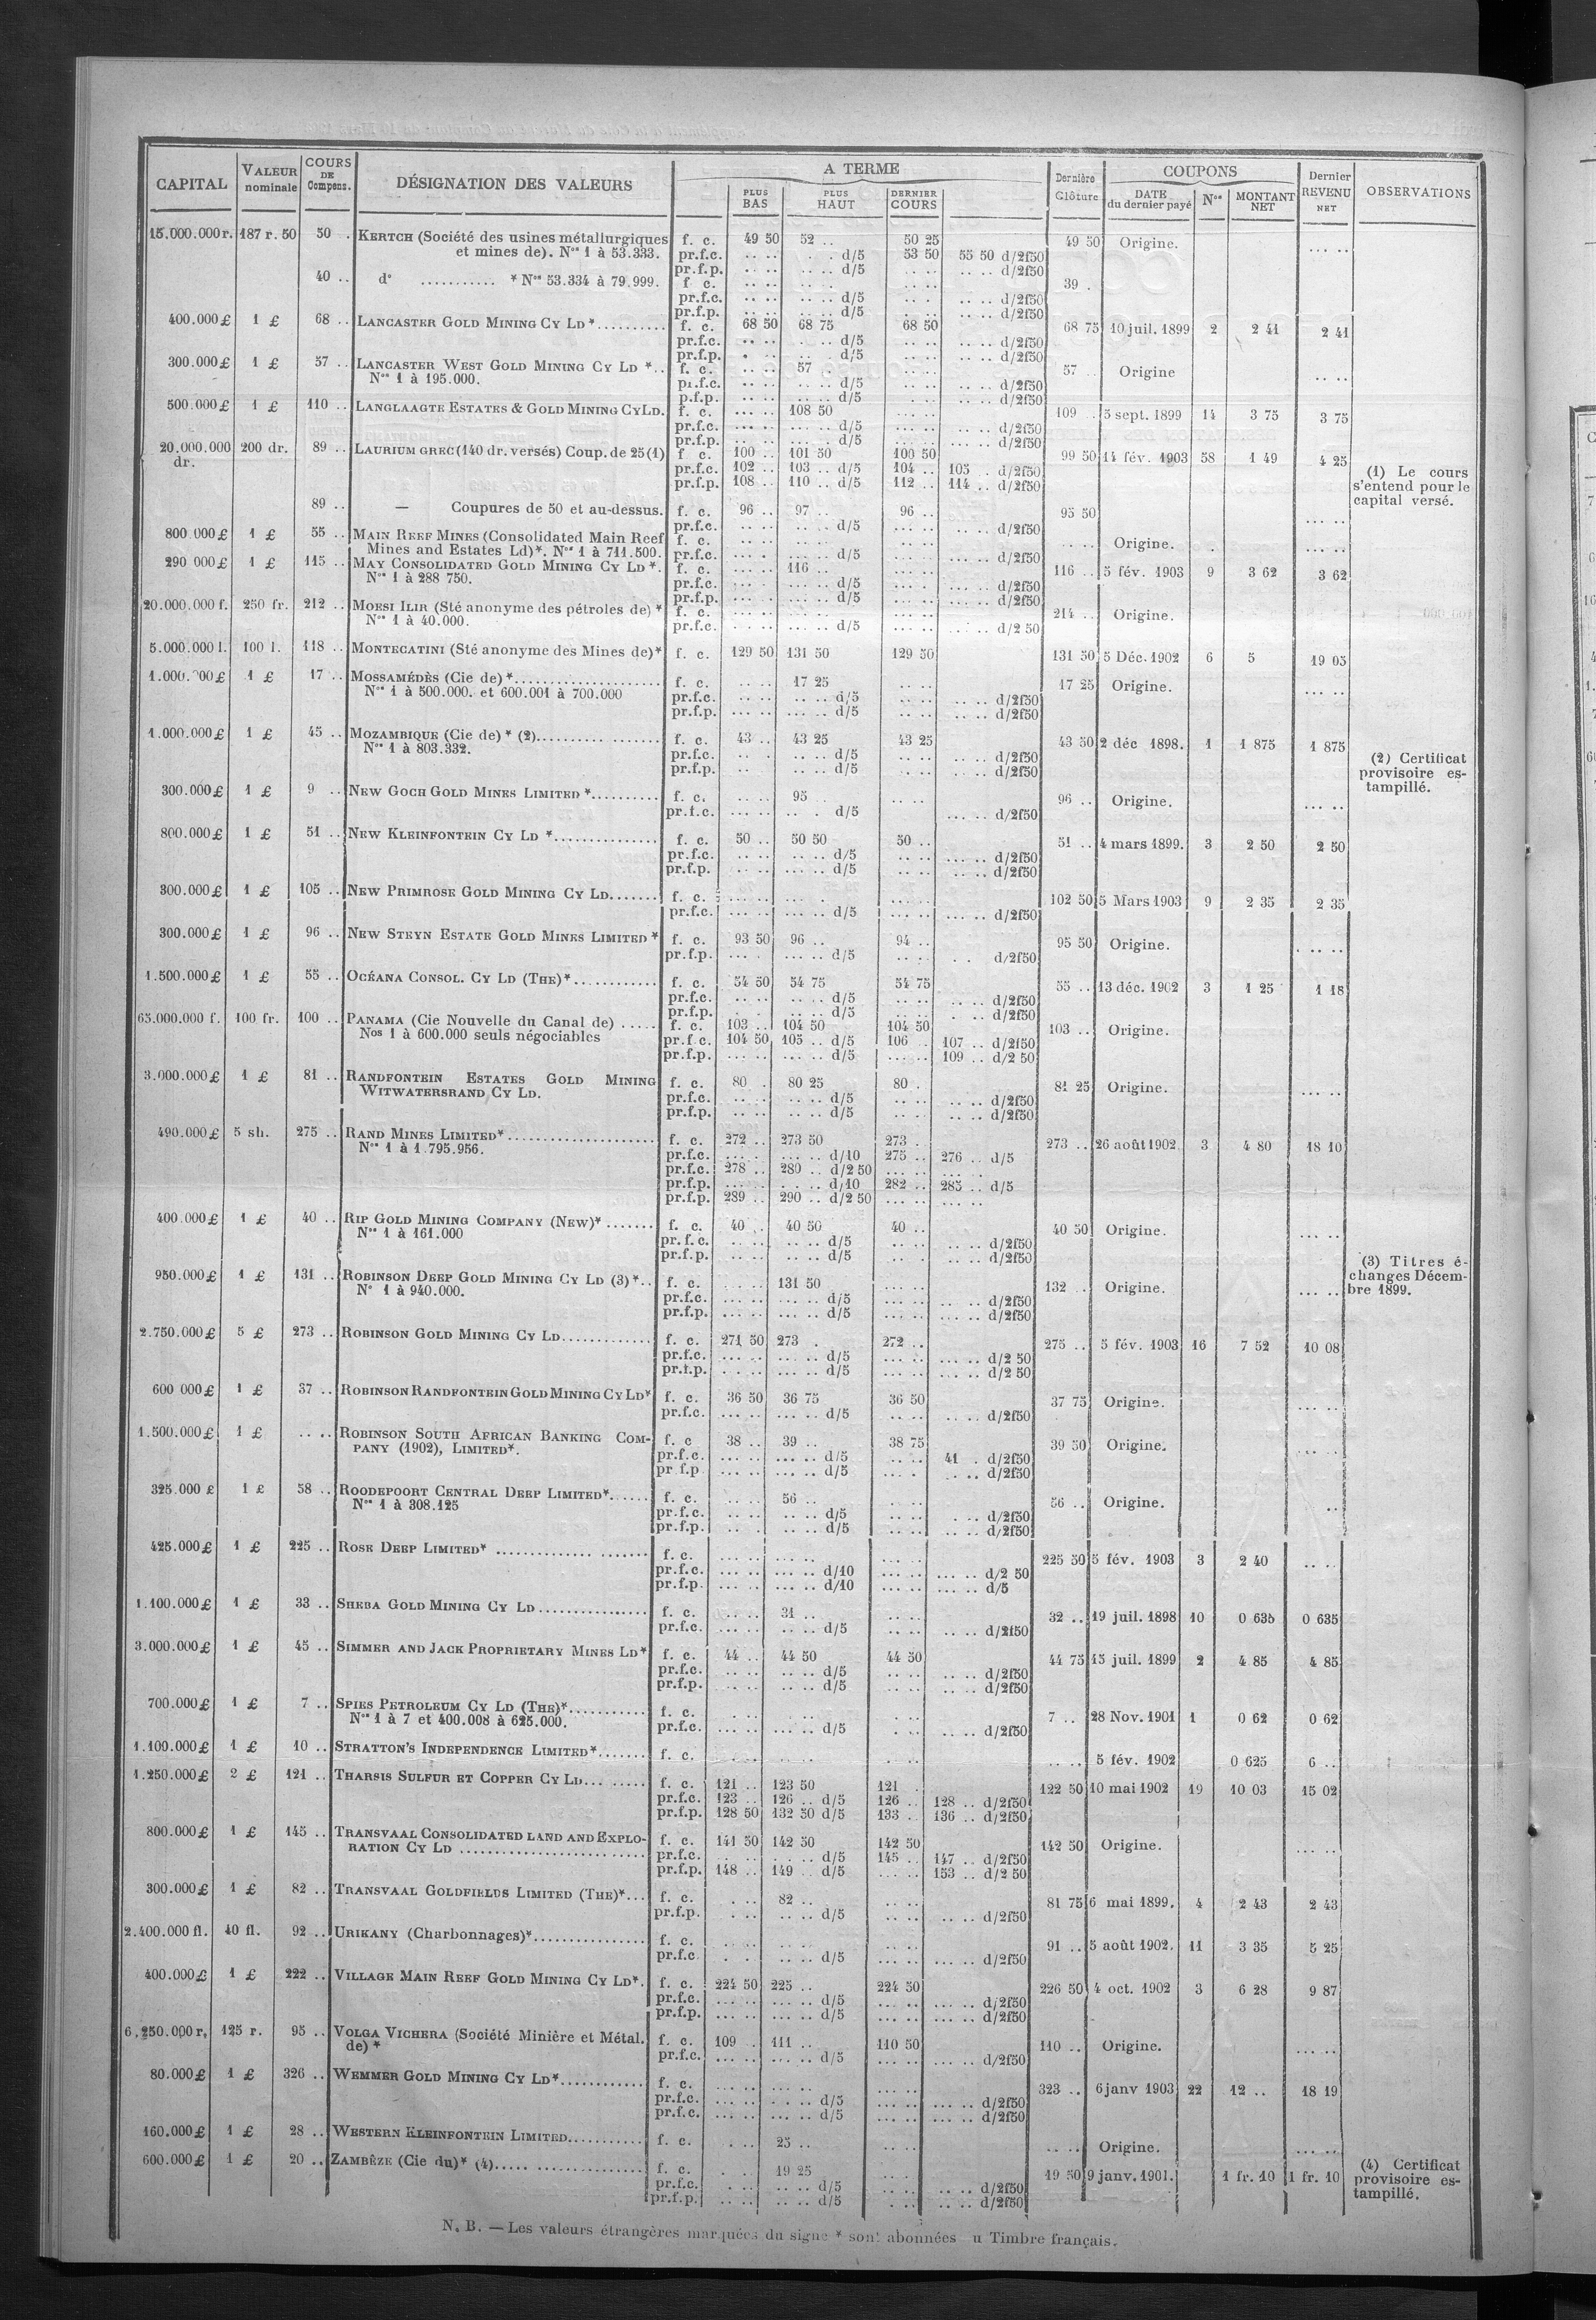 CAPITAL VALEUR nominale COURS DE Compens. DÉSIGNATION DES VALEURS A TERME Dernière Clôture COUPONS Dernier REVENU NET OBSERVATIONS
PLUS BAS PLUS HAUT DERNIER COURS DATE du dernier payé Nos MONTANT NET
15.000.000 r. 187 r. 50 50 . KERTCH (Société des usines métallurgiques f. c. 49 50 52 .. 50 25 49 50 Origine. .. ..
et mines de). Nos 1 à 53.333. pr.f.c. .. .. . . d/5 53 50 55 50 d/2f50
pr.f.p. .. .. .. .. d/5 .. .. .. .. d/2f50
40 .. d° ........... * Nos 53.334 à 79.999. f c. .. .. .. .. .. .. 39 .
pr.f.c. .. .. .. .. d/5 .. . .. .. d/2f50
pr.f.p. .. .. .. .. d/5 .. .. .. .. d/2f50
400.000 £ 1 £ 68 .. LANCASTER GOLD MINING CY LD *.......... f. c. 68 50 68 75 68 50 68 75 10 juil. 1899 2 2 41 2 41
pr.f.c. .. .. . .. d/5 .. .. .. .. d/2f50
pr.f.p. . .. .. . d/5 .. .. .. .. d/2f50
300.000 £ 1 £ 57 .. LANCASTER WEST GOLD MINING CY LD *.. f. c. .. .. 57 . .. .. 57 .. Origine .. ..
Nos 1 à 195.000. pr.f.c. .. .. .. .. d/5 .. .. .. .. d/2f50
p.f.p. .. .. .. .. d/5 .. .. .. .. d/2f50
500.000 £ 1 £ 110 .. LANGLAAGTE ESTATES & GOLD MINING CY LD. f. c. ... .. 108 50 ... .. 109 . 5 sept. 1899 14 3 75 3 75
pr.f.c. ... .. ... .. d/5 ... .. ... .. d/2f50
pr.f.p. .. .. ... . d/5 ... .. ... .. d/2f50
20.000.000 dr. 200 dr. 89 .. LAURIUM GREC (140 dr. versés) Coup. de 25 (1) f c. 100 .. 101 50 100 50 99 50 14 fév. 1903 58 1 49 4 25
pr.f.c. 102 .. 103 .. d/5 104 .. 105 . d/2f50 (1) Le cours
pr.f.p. 108 .. 110 .. d/5 112 .. 114 .. d/2f50 s'entend pour le
89 .. — Coupures de 50 et au-dessus. f. c. 96 .. 97 .. 96 .. 95 50 capital versé.
pr.f.c. .. .. .. .. d/5 ... .. .. .. d/2f50 ... ..
800 000 £ 1 £ 55 .. MAIN REEF MINES (Consolidated Main Reef f. c. .. .. .. .. .. .. .. .. Origine. . ... ..
Mines and Estates Ld)*. Nos 1 à 711.500. pr.f.c. ... . ... .. d/5 ... .. ... .. d/2f50
290 000 £ 1 £ 115 .. MAY CONSOLIDATED GOLD MINING CY LD *. f. c. ... .. 116 .. ... .. 116 .. 5 fév. 1903 9 3 62 3 62
Nos 1 à 288 750. pr.f.c. ... . ... .. d/5 ... .. ... .. d/2f50
pr.f.p. ... .. ... .. d/5 ... .. ... .. d/2f50
20.000.000 f. 250 fr. 212 .. MOESI ILIR (Sté anonyme des pétroles de) * f. c. ... .. ... .. ... .. 214 .. Origine.
Nos 1 à 40.000. pr.f.c. ... .. ... .. d/5 ... .. ... .. d/2 50
5.000.000 l. 100 l. 118 .. MONTECATINI (Sté anonyme des Mines de)* f. c. 129 50 131 50 129 50 131 50 5 Déc. 1902 6 5 19 05
1 £ 17 .. MOSSAMÉDÈS (Cie de) *.................... f. c. .. .. 17 25 .. .. 17 25 Origine. ... ..
Nos 1 à 500.000. et 600.001 à 700.000 pr.f.c. ... .. .. .. d/5 .. .. .. .. d/2f50
pr.f.p. ... .. ... .. d/5 .. .. .. .. d/2f50
1.000.000 £ 1 £ 45 .. MOZAMBIQUE (Cie de) * (2)................ f. c. 43 .. 43 25 43 25 43 50 2 déc 1898. 1 1 875 1 875
Nos 1 à 803.332. pr.f.c. .. . .. .. d/5 .. .. .. .. d/2f50 (2) Certificat
pr.f.p. .. . .. .. d/5 .. .. .. .. d/2f50 provisoire es-
300.000 £ 1 £ 9 .. NEW GOCH GOLD MINES LIMITED *.......... f. c. .. .. 95 . .. .. 96 .. Origine. ... .. tampillé.
pr.f.c. ... .. .. . d/5 ... .. d/2f50
800.000 £ 1 £ 51 .. NEW KLEINFONTEIN CY LD *............... f. c. 50 .. 50 50 50 .. 51 .. 4 mars 1899. 3 2 50 2 50
pr.f.c. .. .. .. .. d/5 .. .. ... .. d/2f50
pr.f.p. .. .. .. .. d/5 .. .. ... .. d/2f50
300.000 £ 1 £ 105 .. NEW PRIMROSE GOLD MINING CY LD....... f. c. ... .. ... . ... .. 102 50 5 Mars 1903 9 2 35 2 35
pr.f.c. ... .. ... .. d/5 ... .. ... .. d/2f50
300.000 £ 1 £ 96 .. NEW STEYN ESTATE GOLD MINES LIMITED * f. c. 93 50 96 .. 94 .. 95 50 Origine. . .. ..
pr.f.p. ... . ... .. d/5 .. . . . d/2f50
1.500.000 £ 1 £ 55 .. OCÉANA CONSOL. CY LD (THE)*............ f. c. 54 50 54 75 54 75 55 .. 13 déc. 1902 3 1 25 1 18
pr.f.c. .. .. .. .. d/5 .. .. .. .. d/2f50
pr.f.p. . . .. .. d/5 .. .. . .. d/2f50
65.000.000 f. 100 fr. 100 .. PANAMA (Cie Nouvelle du Canal de) ..... f. c. 103 .. 104 50 104 50 103 .. Origine.
Nos 1 à 600.000 seuls négociables pr.f c. 104 50 105 .. d/5 106 .. 107 .. d/2f50
pr.f.p. ... .. ... .. d/5 ... .. 109 .. d/2 50
3.000.000 £ 1 £ 81 .. RANDFONTEIN ESTATES GOLD MINING f. c. 80 . 80 25 80 . 81 25 Origine. ... ..
WITWATERSRAND CY LD. pr.f.c. .. .. .. .. d/5 .. .. .. .. d/2f50
pr.f.p. .. .. .. .. d/5 .. .. .. .. d/2f50
490.000 £ 5 sh. 275 .. RAND MINES LIMITED*..................... f. c. 272 .. 273 50 273 . 273 .. 26 août 1902. 3 4 80 18 10
Nos 1 à 1.795.956. pr.f.c. ... . ... .. d/10 275 .. 276 .. d/5
pr.f.c. 278 .. 280 .. d/2 50 ... .. ... ..
pr.f.p. ... .. . .. d/10 282 .. 285 .. d/5
pr.f.p. 289 .. 290 .. d/2 50 ... .. ... ..
400.000 £ 1 £ 40 .. RIP GOLD MINING COMPANY (NEW)*....... f. c. 40 .. 40 50 40 .. 40 50 Origine. ... ..
Nos 1 à 161.000 pr.f.c. .. .. .. .. d/5 .. .. .. .. d/2f50
pr.f.p. .. .. .. .. d/5 .. . .. .. d/2f50 (3) Titres é-
950.000 £ 1 £ 131 .. ROBINSON DEEP GOLD MINING CY LD (3)*.. f. c. ... .. 131 50 ... .. 132 .. Origine. ... .. changes Décem-
N° 1 à 940.000. pr.f.c. ... .. ... .. d/5 ... .. .. .. d/2f50 bre 1899.
pr.f.p. ... .. ... .. d/5 ... .. ... .. d/2f50
2.750.000 £ 5 £ 273 .. ROBINSON GOLD MINING CY LD............. f. c. 271 50 273 . 272 .. 275 .. 5 fév. 1903 16 7 52 10 08
pr.f.c. ... .. ... .. d/5 ... .. ... .. d/2 50
pr.f.p. ... .. ... .. d/5 ... .. ... .. d/2 50
600 000 £ 1 £ 37 .. ROBINSON RANDFONTEIN GOLD MINING CY LD* f. c. 36 50 36 75 36 50 37 75 Origine. ... ..
pr.f.c. ... .. ... .. d/5 .. .. .. .. d/2f50
1.500.000 £ 1 £ .. .. ROBINSON SOUTH AFRICAN BANKING COM- f. c 38 .. 39 .. 38 75 39 50 Origine. ... ..
PANY (1902), LIMITED*. pr.f.c. ... .. ... .. d/5 .. .. 41 . d/2f50
pr f.p ... .. ... .. d/5 ... . .. .. d/2f50
325.000 £ 1 £ 58 .. ROODEPOORT CENTRAL DEEP LIMITED*...... f. c. .. .. 56 .. . .. 56 .. Origine. ..
Nos 1 à 308.125 pr.f.c. .. .. .. .. d/5 .. .. . .. d/2f50
pr.f.p. .. . .. .. d/5 .. .. .. .. d/2f50
425.000 £ 1 £ 225 .. ROSE DEEP LIMITED* ..................... f. c. ... .. ... .. ... .. 225 50 5 fév. 1903 3 2 40 .. ..
pr.f.c. ... .. ... .. d/10 ... .. ... .. d/2 50
pr.f.p. ... .. ... .. d/10 ... .. ... .. d/5
1.100.000 £ 1 £ 33 .. SHEBA GOLD MINING CY LD................ f. c. .. .. 31 .. .. .. 32 .. 19 juil. 1898 10 0 635 0 635
pr.f.c. ... .. .. .. d/5 .. .. .. .. d/2f50
3.000.000 £ 1 £ 45 .. SIMMER AND JACK PROPRIETARY MINES LD* f. c. 44 .. 44 50 44 50 44 75 15 juil. 1899 2 4 85 4 85
pr.f.c. .. .. .. .. d/5 .. .. .. .. d/2f50
pr.f.p. .. .. .. .. d/5 .. .. .. .. d/2f50
700.000 £ 1 £ 7 .. SPIES PETROLEUM CY LD (THE)*........... f. c. . .. .. .. . .. 7 .. 28 Nov. 1901 1 0 62 0 62
Nos 1 à 7 et 400.008 à 625.000. pr.f.c. ... .. ... .. d/5 . .. .. .. d/2f50
1.100.000 £ 1 £ 10 .. STRATTON'S INDEPENDENCE LIMITED*....... f. c. . .. .. .. .. . .. .. .. 5 fév. 1902 0 625 6 ..
1.250.000 £ 2 £ 121 .. THARSIS SULFUR ET COPPER CY LD......... f. c. 121 .. 123 50 121 . 122 50 10 mai 1902 19 10 03 15 02
pr.f.c. 123 .. 126 .. d/5 126 .. 128 .. d/2f50
pr.f.p. 128 50 132 50 d/5 133 .. 136 .. d/2f50
800.000 £ 1 £ 145 .. TRANSVAAL CONSOLIDATED LAND AND EXPLO- f. c. 141 50 142 50 142 50 142 50 Origine. ... ..
RATION CY LD .......................... pr.f.c. . .. . .. d/5 145 .. 147 .. d/2f50
pr.f.p. 148 .. 149 .. d/5 ... .. 153 .. d/2 50
300.000 £ 1 £ 82 .. TRANSVAAL GOLDFIELDS LIMITED (THE)*... f. c. . .. 82 .. .. .. 81 75 6 mai 1899. 4 2 43 2 43
pr.f.p. . .. .. .. d/5 .. .. .. .. d/2f50
2.400.000 fl. 40 fl. 92 .. URIKANY (Charbonnages)*................ f. c. .. .. .. .. .. .. 91 .. 5 août 1902. 11 3 35 5 25
pr.f.c . . .. .. d/5 ... .. ... .. d/2f50
400.000 £ 1 £ 222 .. VILLAGE MAIN REEF GOLD MINING CY LD*. f. c. 224 50 225 .. 224 50 226 50 4 oct. 1902 3 6 28 9 87
pr.f.c. ... .. ... .. d/5 ... .. ... .. d/2f50
pr.f.p. ... .. ... .. d/5 ... .. ... .. d/2f50
6.250.000 r. 125 r. 95 .. VOLGA VICHERA (Société Minière et Métal. f. c. 109 . 111 .. 110 50 110 .. Origine. ... ..
de) * pr.f.c. ... .. ... .. d/5 ... .. ... .. d/2f50
80.000 £ 1 £ 326 .. WEMMER GOLD MINING CY LD*............ f. c. ... .. ... .. ... .. 323 .. 6 janv 1903 22 12 .. 18 19
pr.f.c. ... .. ... .. d/5 ... .. ... .. d/2f50
pr.f.c. ... .. ... .. d/5 ... .. ... .. d/2f50
160.000 £ 1 £ 28 .. WESTERN KLEINFONTEIN LIMITED........... f. c. . .. 25 .. .. .. .. .. Origine. ... ..
600.000 £ 1 £ 20 .. ZAMBÈZE (Cie du)* (4)..................... f. c. . . 19 25 .. . 19 50 9 janv. 1901. 1 fr. 10 1 fr. 10 (4) Certificat
pr.f.c. . .. .. .. d/5 .. .. .. .. d/2f50 provisoire es-
pr.f.p. .. .. .. .. d/5 . .. .. .. d/2f50 tampillé.
N. B. — Les valeurs étrangères marquées du signe * sont abonnées u Timbre français.